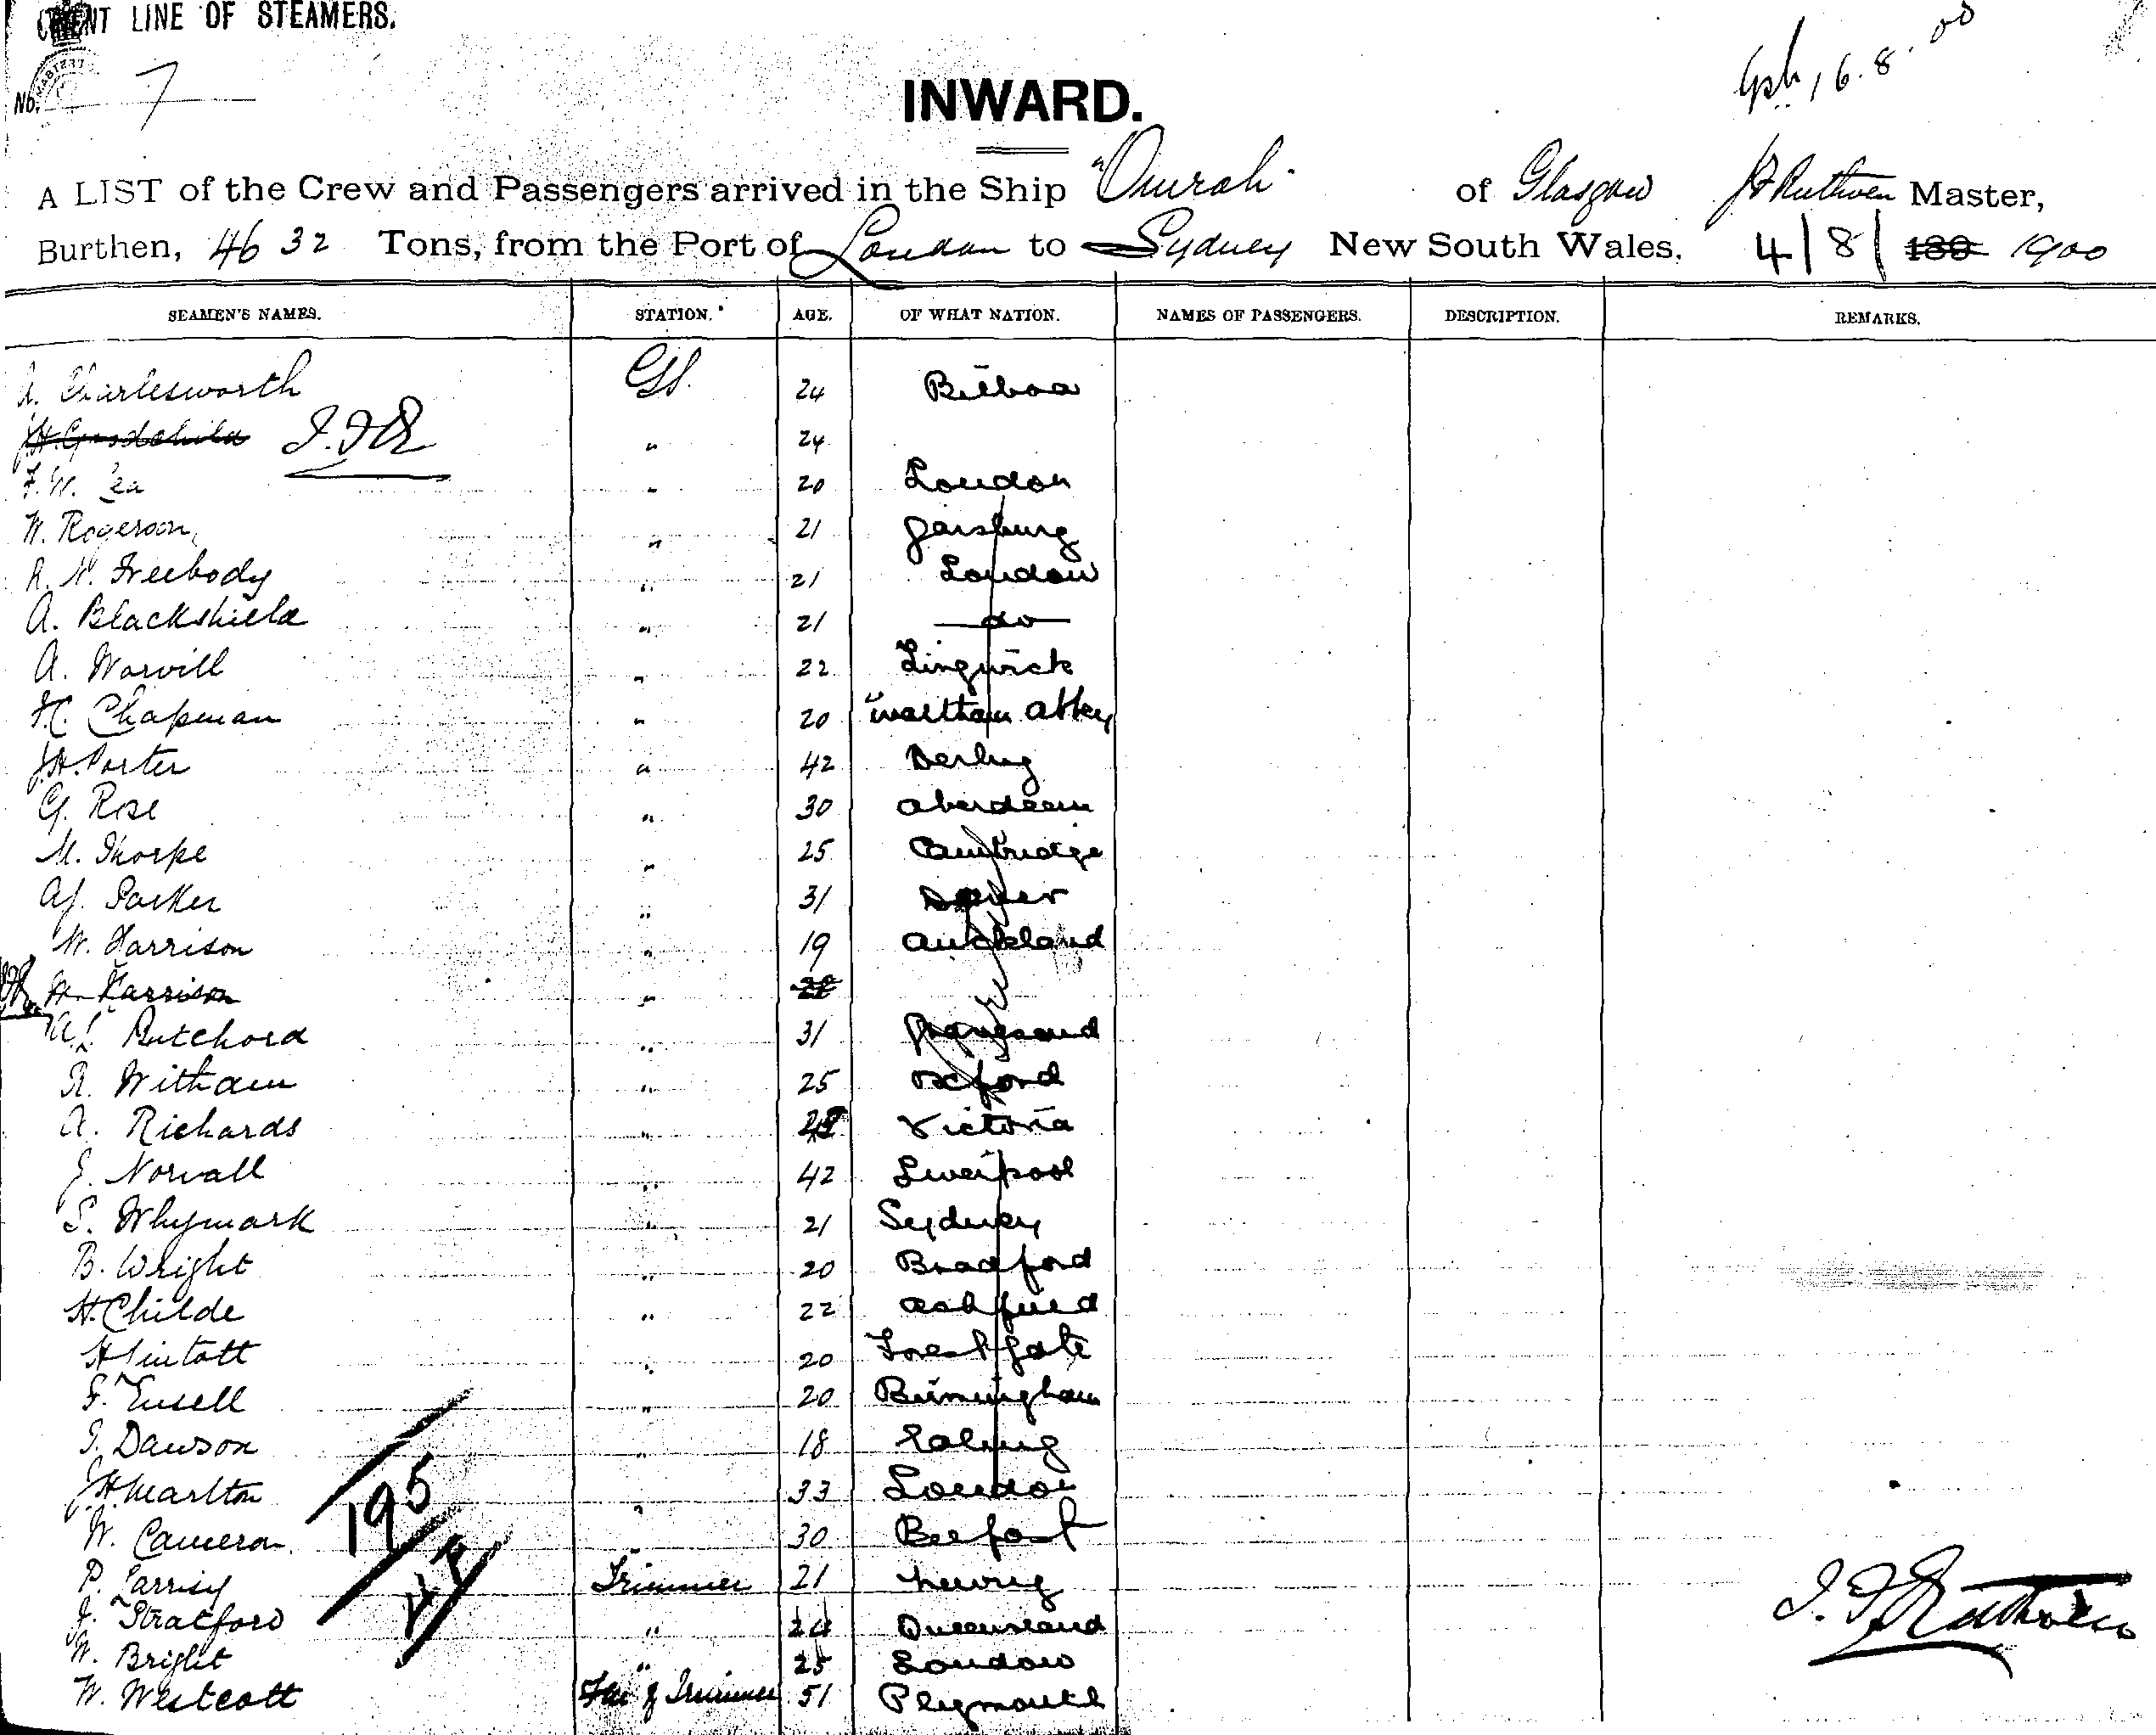 LINE OF STEAMERS.
No. 7
16.8.00
INWARD.
A LIST of the Crew and Passengers arrived in the Ship "Omrah" of Glasgow J F Ruthven Master,
Burthen, 4632 Tons, from the Port of London to Sydney New South Wales, 4/8/ 189 1900
SEAMEN'S NAMES. STATION. AGE. OF WHAT NATION. NAMES OF PASSENGERS. DESCRIPTION. REMARKS.
A. Charlesworth GS. 24 Bilboa
J.H. Goodchild J.F.R " 24
F.W. " 20 London
W. Rogerson " 21
R. N. Freebody " 21 London
A. Blackshield " 21 do
A. Worvill " 22 Lingwick
H. Chapman " 20 Waltham Abbey
J.H. Porter " 42 Derby
G. Rose " 30 Aberdeen
M. Thorpe " 25 Cambridge
A.J. Parker " 31
W. Harrison " 19 Auckland
W. Harrison "
Butchord " 31
R. Witham " 25 Oxford
A. Richards " Victoria
J. Norvall " 42 Liverpool
S. Whymark " 21 Sydney
B. Wright " 20 Bradford
H. Childe " 22 Ashford
H Sintott " 20 Forest gate
F. Ensell " 20 Birmingham
J. Dawson " 18 Ealing
J H Marlton " 33 London
195
W. Cameron " 30 Belfast
P. Trimmer 21
J. Stratford " 24 Queensland
W. Bright " 25 London
W. Westcott Trimmer 51 Plymouth
J. F. Ruthven